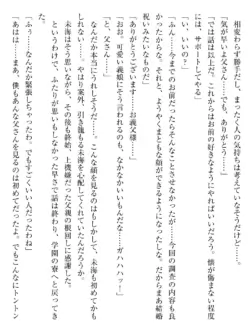 相変わらず勝手だし、まったく人の気持ちは考えてなさそうだけど……。
気が早いよ父さん……でも、うん、ありがとう」
「では以上だ。だが、これからはお前の好きなようにやればいいだろう。懐が痛まない程度
に、サポートしてやる」
「い、いいの？」
「ふん……今までのお前だったらそんなことさせなかったが……今回の調査の内容も良
かったからな。それと、これからまともな顔ができるようになったな。だからまあ結婚
祝いみたいなものだ」
「ありがとうございます……お義父様」
「おお、可愛い義娘にそう言われるのも、なかなかいいもんだな……ガハハハッ！」
「と、父さん……」
なんだか本当にうれしそうだ……。こんな顔を見るのはもしかして、未海も初めてかも
しれない……。やはり案外、引き籠もる未海を心配してくれていたんだろうか。
未海はそう思いながら、その後も終始、上機嫌だった父親の根回しに感謝した。
というわけで、ふたりが思いもしなかった早さで話は終わり、学園寮へと戻ってき
た。
「ふぅ……なんだか緊張しちゃったわ。でもすごくいい人だったわね」
「あはは……まあ、僕もあんな父さんを見るのは初めてだったよ。でもこんなにトントン